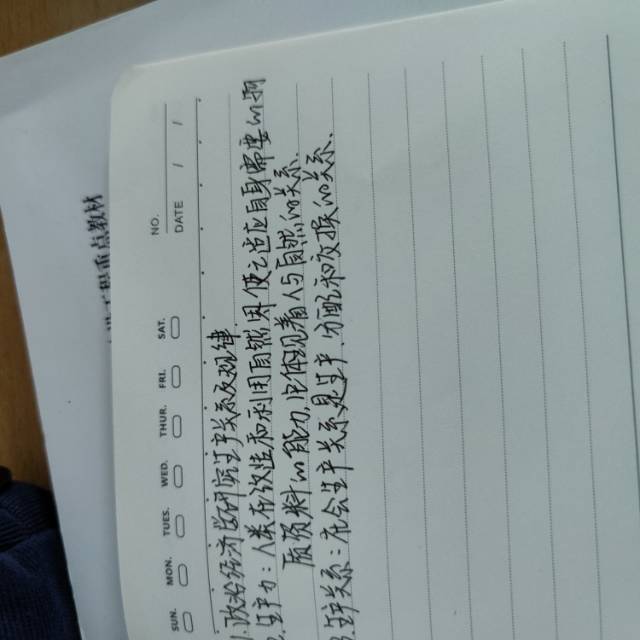 NO.
DATE / /
SUN. MON. TUES. WED. THUR. FRI. SAT.
1.政治经济学研究生产关系及规律
2.生产力:人类改造和利用自然界使之适应自身需要的物
质资料的能力,它体现着人与自然的关系
3.生产关系:社会生产关系是生产、分配和交换的关系.
重点教材